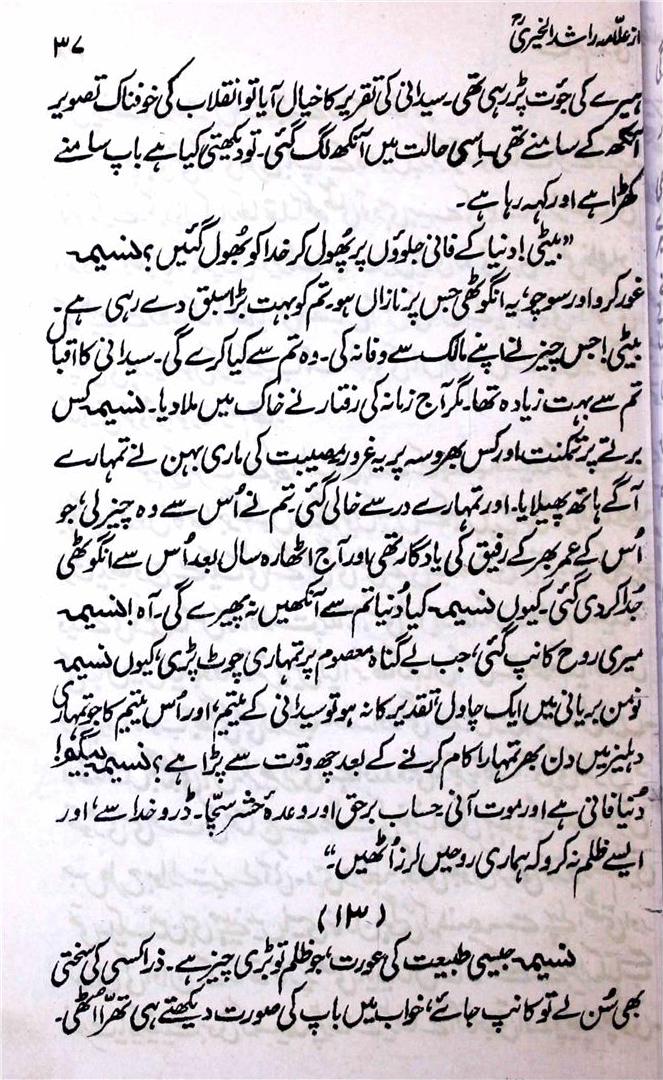 از علامہ راشد الخیریؒ
۳۷
ہیرے کی جوت پڑ رہی تھی۔ سیدانی کی تقریر کا خیال آیا تو انقلاب کی خوفناک تصویر
آنکھ کے سامنے تھی۔ اسی حالت میں آنکھ لگ گئی۔ تو دیکھتی کیا ہے باپ سامنے
کھڑا ہے اور کہہ رہا ہے۔
”بیٹی! دنیا کے فانی جلوؤں پر پھول کر خدا کو بھول گئیں؟ نسیمہ
غور کرو اور سوچو، یہ انگوٹھی جس پر نازاں ہو۔ تم کو بہت بڑا سبق دے رہی ہے۔
بیٹی! جس چیز نے اپنے مالک سے وفا نہ کی۔ وہ تم سے کیا کرے گی۔ سیدانی کا اقبال
تم سے بہت زیادہ تھا۔ مگر آج زمانہ کی رفتار نے خاک میں ملا دیا۔ نسیمہ کس
برتے پر تمکنت اور کس بھروسہ پر یہ غرور۔ مصیبت کی ماری بہن نے تمہارے
آگے ہاتھ پھیلایا۔ اور تمہارے در سے خالی گئی۔ تم نے اُس سے وہ چیز لی، جو
اُس کے عمر بھر کے رفیق کی یادگار تھی اور آج اٹھارہ سال بعد اُس سے انگوٹھی
جُدا کر دی گئی۔ کیوں نسیمہ کیا دُنیا تم سے آنکھیں نہ پھیرے گی۔ آہ! نسیمہ
میری روح کانپ گئی، جب بے گناہ معصوم پر تمہاری چوٹ پڑی، کیوں نسیمہ
نومن بریانی میں ایک چاول، تقدیر کا نہ ہو تو سیدانی کے یتیم، اور اُس یتیم کا جو تمہاری
دہلیز میں دن بھر تمہارا کام کرنے کے بعد چھ وقت سے پڑا ہے؟ نسیمہ بیگم!
دُنیا فانی ہے اور موت آنی۔ حساب برحق اور وعدۂ حشر سچّا۔ ڈرو خدا سے، اور
ایسے ظلم نہ کرو کہ ہماری روحیں لرز اُٹھیں۔“
(۱۳)
نسیمہ جیسی طبیعت کی عورت، جو ظلم تو بڑی چیز ہے۔ ذرا کسی کی سختی
بھی سُن لے تو کانپ جائے، خواب میں باپ کی صورت دیکھتے ہی تھرّا اُٹھی۔